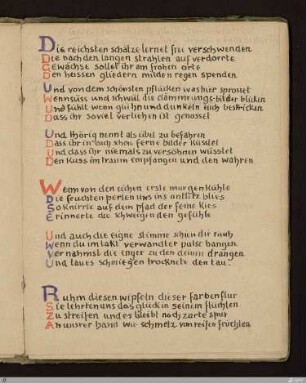 Die reichsten schätze lernet frei verschwenden
Die nach den langen strahlen auf verdorrte
Gewächse sollet ihr am frohen orte
Den heissen gliedern milden regen spenden
Und von dem schönsten pflücken was hier sprosset
Wenn süss und schwül die dämmrungs-bilder blicken
Und fühlt wenn glühn und dunkeln euch bestricken
Dass ihr soviel verliehen ist genosset
Und hörig nennt als übel zu befahren
Dass ihr in euch schon ferne bilder küsstet
Und dass ihr niemals zu versöhnen wüsstet
Den kuss im traum empfangen und den wahren
Wem von den eichen erste morgenkühle
Die feuchten perlen uns ins antlitz blies
So knirrte auf dem pfad der feine kies
Erinnerte die schweigenden gefühle
Und auch die eigne stimme schien dir rauh
Wenn du im takt verwandter pulse bangen
Vernahmst die finger zu den deinen drangen
Und lautes schmiegen trocknete den tau.
Ruhm diesen wipfeln dieser farbenflur
Sie lehrten uns das glück in seinem flüchten
Zu streifen und es bleibt noch zarte spur
An unsrer hand wie schmelz von reifen früchten